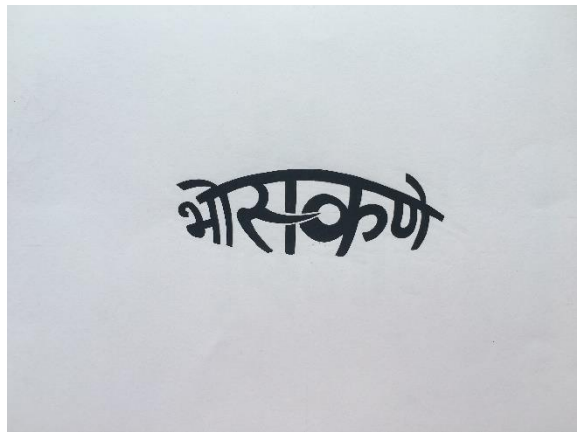 भोसकणे